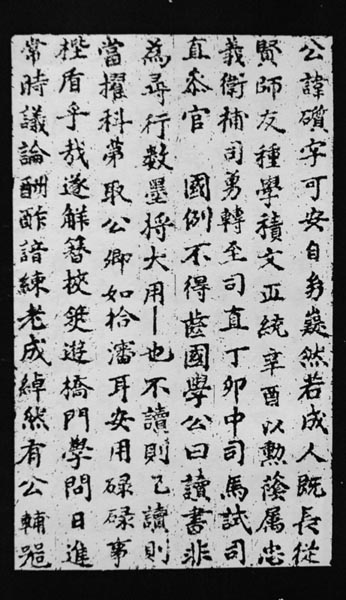 公諱礩字可安自㓜嶷然若成人既長從
賢師友種學積文正統辛酉以勲蔭属忠
義衛補司勇轉至司直丁卯中司馬試司
直叅官 國例不得齒國學公曰讀書非
為尋行数墨将大用也不讀則已讀則
當擢科第取公卿如拾瀋耳安用碌碌事
桯盾乎㦲遂觧簪挍筴遊橋門學問日進
常時議論酬酢諳練老成綽然有公輔噐